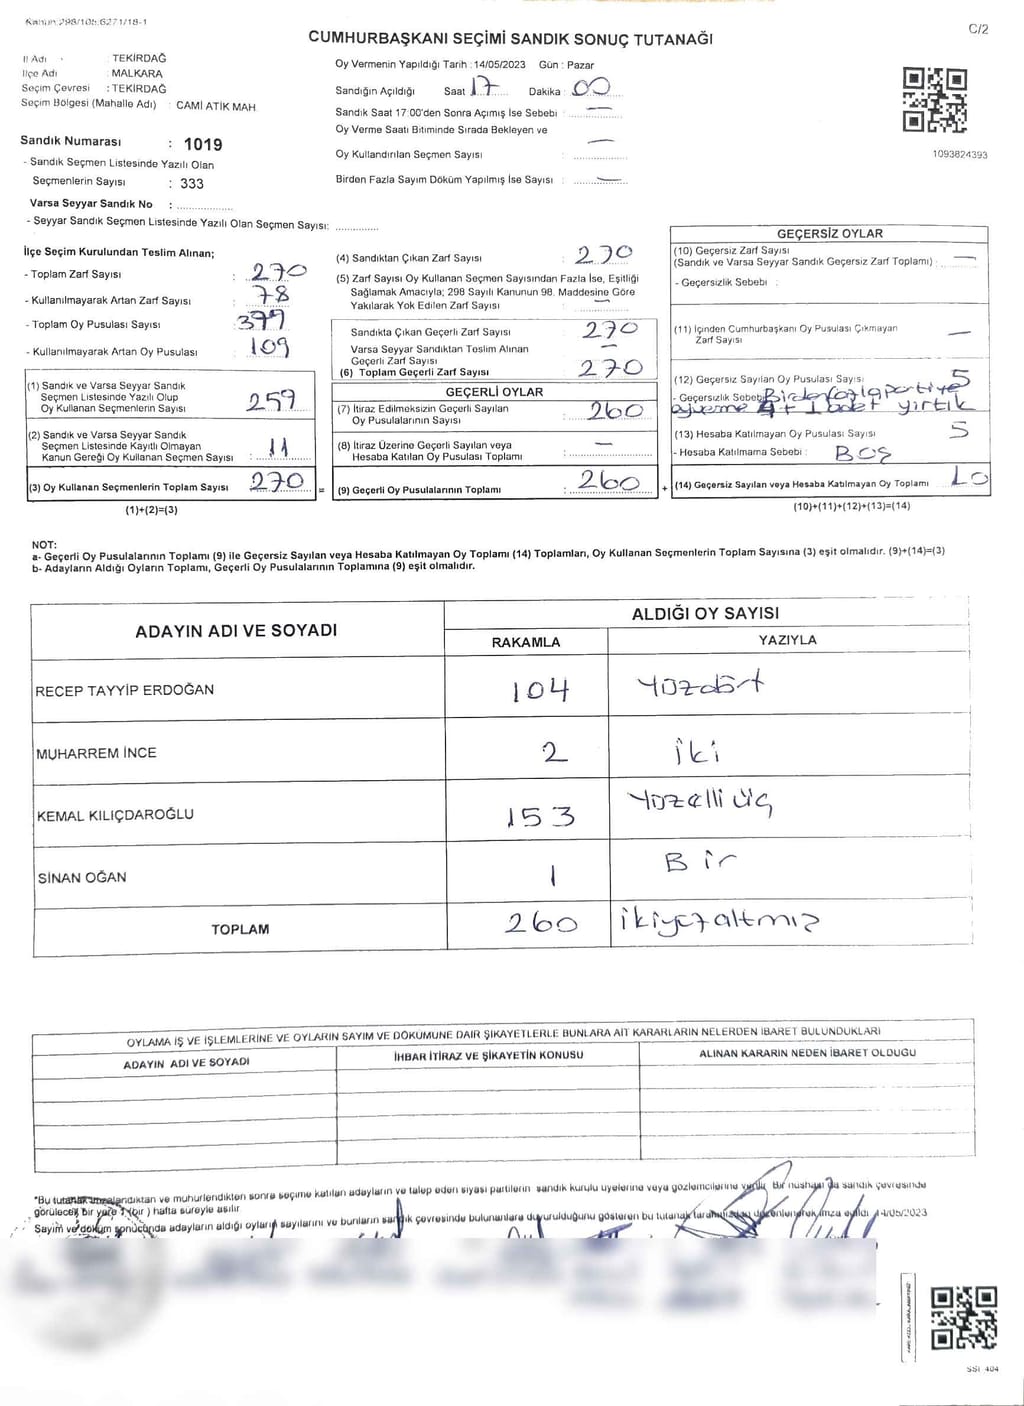 Kanun:298/105;6271/18-1
C/2
CUMHURBAŞKANI SEÇİMİ SANDIK SONUÇ TUTANAĞI
İl Adı : TEKİRDAĞ
İlçe Adı : MALKARA
Seçim Çevresi : TEKİRDAĞ
Seçim Bölgesi (Mahalle Adı) : CAMİ ATİK MAH
Sandık Numarası : 1019
- Sandık Seçmen Listesinde Yazılı Olan
Seçmenlerin Sayısı : 333
Varsa Seyyar Sandık No :
- Seyyar Sandık Seçmen Listesinde Yazılı Olan Seçmen Sayısı:
Oy Vermenin Yapıldığı Tarih :14/05/2023 Gün : Pazar
Sandığın Açıldığı Saat 17 Dakika : 00
Sandık Saat 17:00'den Sonra Açımış İse Sebebi : —
Oy Verme Saati Bitiminde Sırada Bekleyen ve
Oy Kullandırılan Seçmen Sayısı : —
Birden Fazla Sayım Döküm Yapılmış İse Sayısı : —
1093824393
İlçe Seçim Kurulundan Teslim Alınan;
- Toplam Zarf Sayısı : 270
- Kullanılmayarak Artan Zarf Sayısı : 78
- Toplam Oy Pusulası Sayısı : 379
- Kullanılmayarak Artan Oy Pusulası : 109
(1) Sandık ve Varsa Seyyar Sandık
Seçmen Listesinde Yazılı Olup
Oy Kullanan Seçmenlerin Sayısı : 259
(2) Sandık ve Varsa Seyyar Sandık
Seçmen Listesinde Kayıtlı Olmayan
Kanun Gereği Oy Kullanan Seçmen Sayısı : 11
(3) Oy Kullanan Seçmenlerin Toplam Sayısı : 270 =
(1)+(2)=(3)
(4) Sandıktan Çıkan Zarf Sayısı : 270
(5) Zarf Sayısı Oy Kullanan Seçmen Sayısından Fazla İse, Eşitliği
Sağlamak Amacıyla; 298 Sayılı Kanunun 98. Maddesine Göre
Yakılarak Yok Edilen Zarf Sayısı : —
Sandıkta Çıkan Geçerli Zarf Sayısı : 270
Varsa Seyyar Sandıktan Teslim Alınan
Geçerli Zarf Sayısı : —
(6) Toplam Geçerli Zarf Sayısı : 270
GEÇERLİ OYLAR
(7) İtiraz Edilmeksizin Geçerli Sayılan
Oy Pusulalarının Sayısı : 260
(8) İtiraz Üzerine Geçerli Sayılan veya
Hesaba Katılan Oy Pusulası Toplamı : —
(9) Geçerli Oy Pusulalarının Toplamı : 260 +
GEÇERSİZ OYLAR
(10) Geçersiz Zarf Sayısı
(Sandık ve Varsa Seyyar Sandık Geçersiz Zarf Toplamı) : —
- Geçersizlik Sebebi :
(11) İçinden Cumhurbaşkanı Oy Pusulası Çıkmayan
Zarf Sayısı —
(12) Geçersiz Sayılan Oy Pusulası Sayısı 5
- Geçersizlik Sebebi Birden fazla partiye
oy verme 4 + 1 adet yırtık
(13) Hesaba Katılmayan Oy Pusulası Sayısı 5
- Hesaba Katılmama Sebebi : BOŞ
(14) Geçersiz Sayılan veya Hesaba Katılmayan Oy Toplamı 10
(10)+(11)+(12)+(13)=(14)
NOT:
a- Geçerli Oy Pusulalarının Toplamı (9) ile Geçersiz Sayılan veya Hesaba Katılmayan Oy Toplamı (14) Toplamları, Oy Kullanan Seçmenlerin Toplam Sayısına (3) eşit olmalıdır. (9)+(14)=(3)
b- Adayların Aldığı Oyların Toplamı, Geçerli Oy Pusulalarının Toplamına (9) eşit olmalıdır.
ADAYIN ADI VE SOYADI ALDIĞI OY SAYISI
RAKAMLA YAZIYLA
RECEP TAYYİP ERDOĞAN 104 Yüzdört
MUHARREM İNCE 2 İki
KEMAL KILIÇDAROĞLU 153 Yüzelli üç
SİNAN OĞAN 1 Bir
TOPLAM 260 ikiyüzaltmış
OYLAMA İŞ VE İŞLEMLERİNE VE OYLARIN SAYIM VE DÖKÜMÜNE DAİR ŞİKAYETLERLE BUNLARA AİT KARARLARIN NELERDEN İBARET BULUNDUKLARI
ADAYIN ADI VE SOYADI İHBAR İTİRAZ VE ŞİKAYETİN KONUSU ALINAN KARARIN NEDEN İBARET OLDUĞU
"Bu tutanak imzalandıktan ve mühürlendikten sonra seçime katılan adayların ve talep eden siyasi partilerin sandık kurulu üyelerine veya gözlemcilerine verilir. Bir nushası da sandık çevresinde
görülecek bir yere 1 (bir ) hafta süreyle asılır
Sayım ve döküm sonucunda adayların aldığı oyların sayılarını ve bunların sandık çevresinde bulunanlara duyurulduğunu gösteren bu tutanak tarafımızdan düzenlenerek imza edildi 14/05/2023
SSI 404